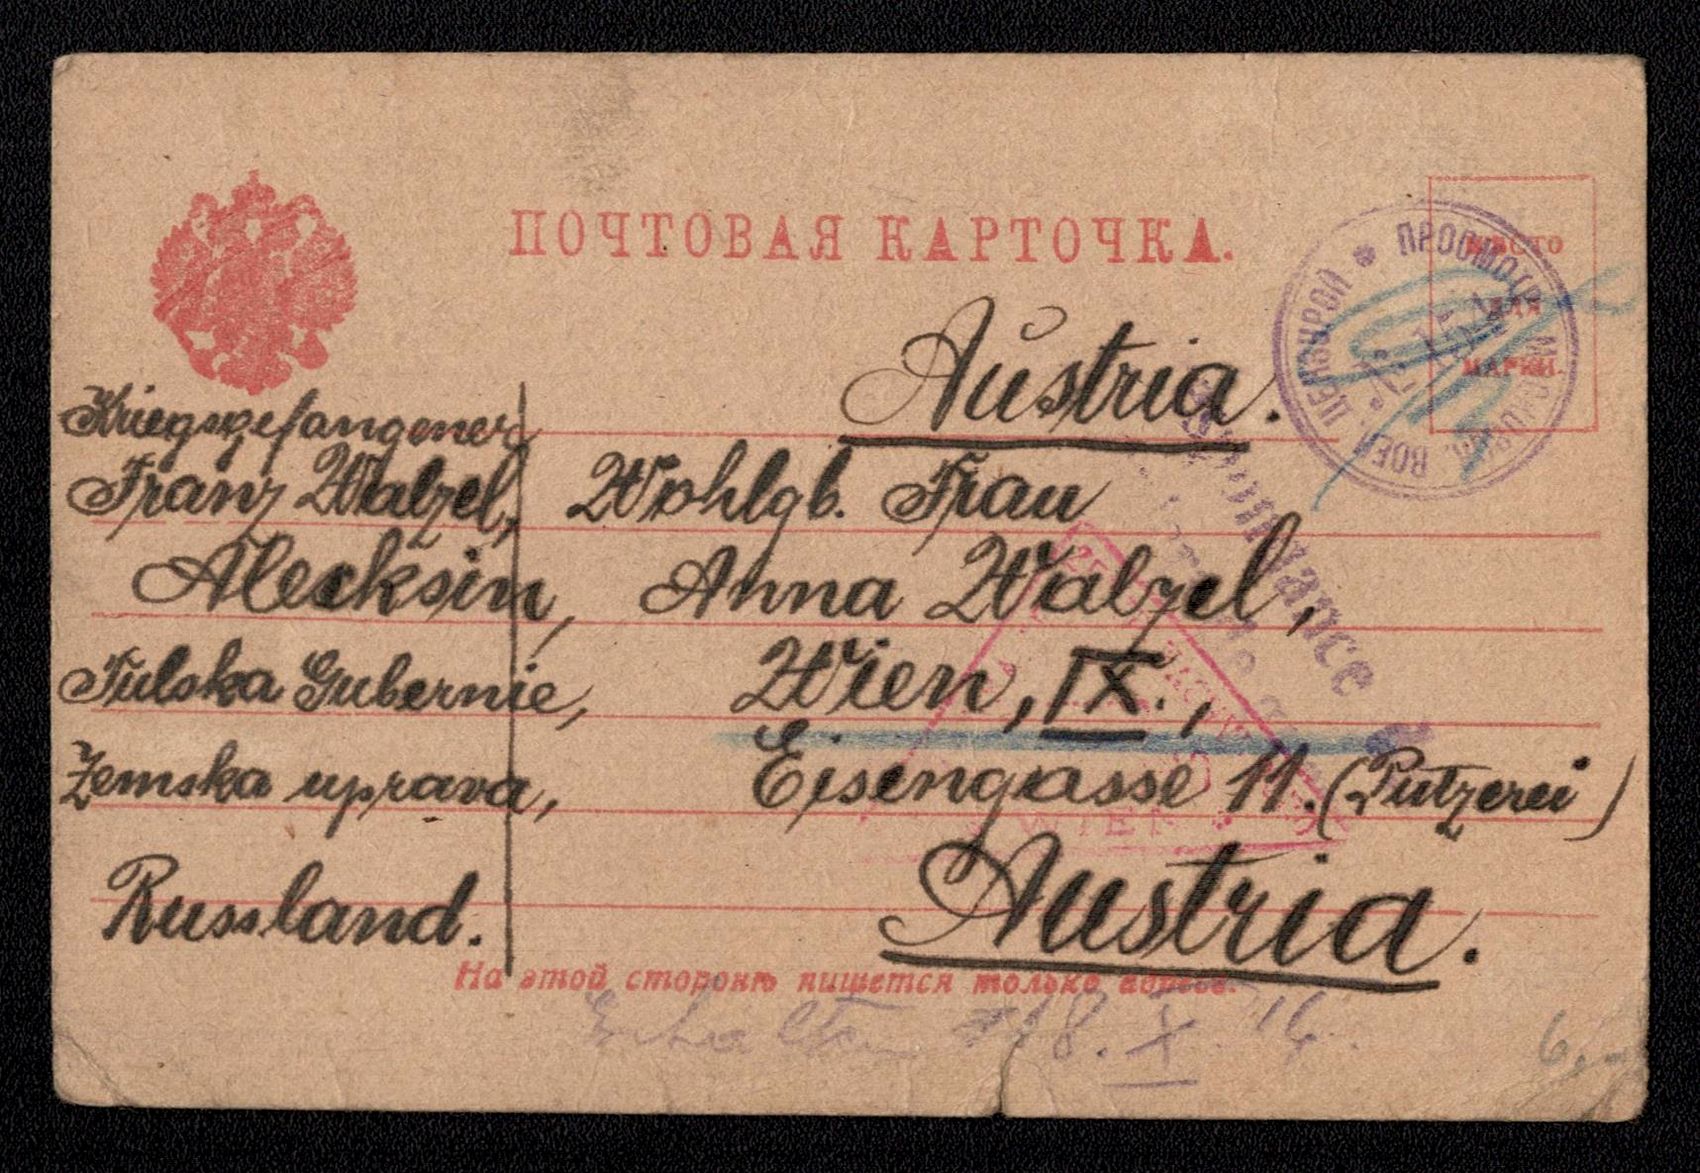 ПОЧТОВАЯ КАРТОЧКА.
МѢСТО
ДЛЯ
МАРКИ.
ВОЕН. ЦЕНЗУРОЙ * ПРОСМОТР.
Austria.
Kriegsgefangener
Franz Walzel,
Alecksin,
Tulska Gubernie,
Zemska uprava,
Russland.
Wohlgb. Frau
Anna Walzel,
Wien, IX.,
Eisengasse 11. (Putzerei)
Austria.
WIEN
На этой сторонѣ пишется только адресъ.
Erhalten 18. X. 14.
6,-